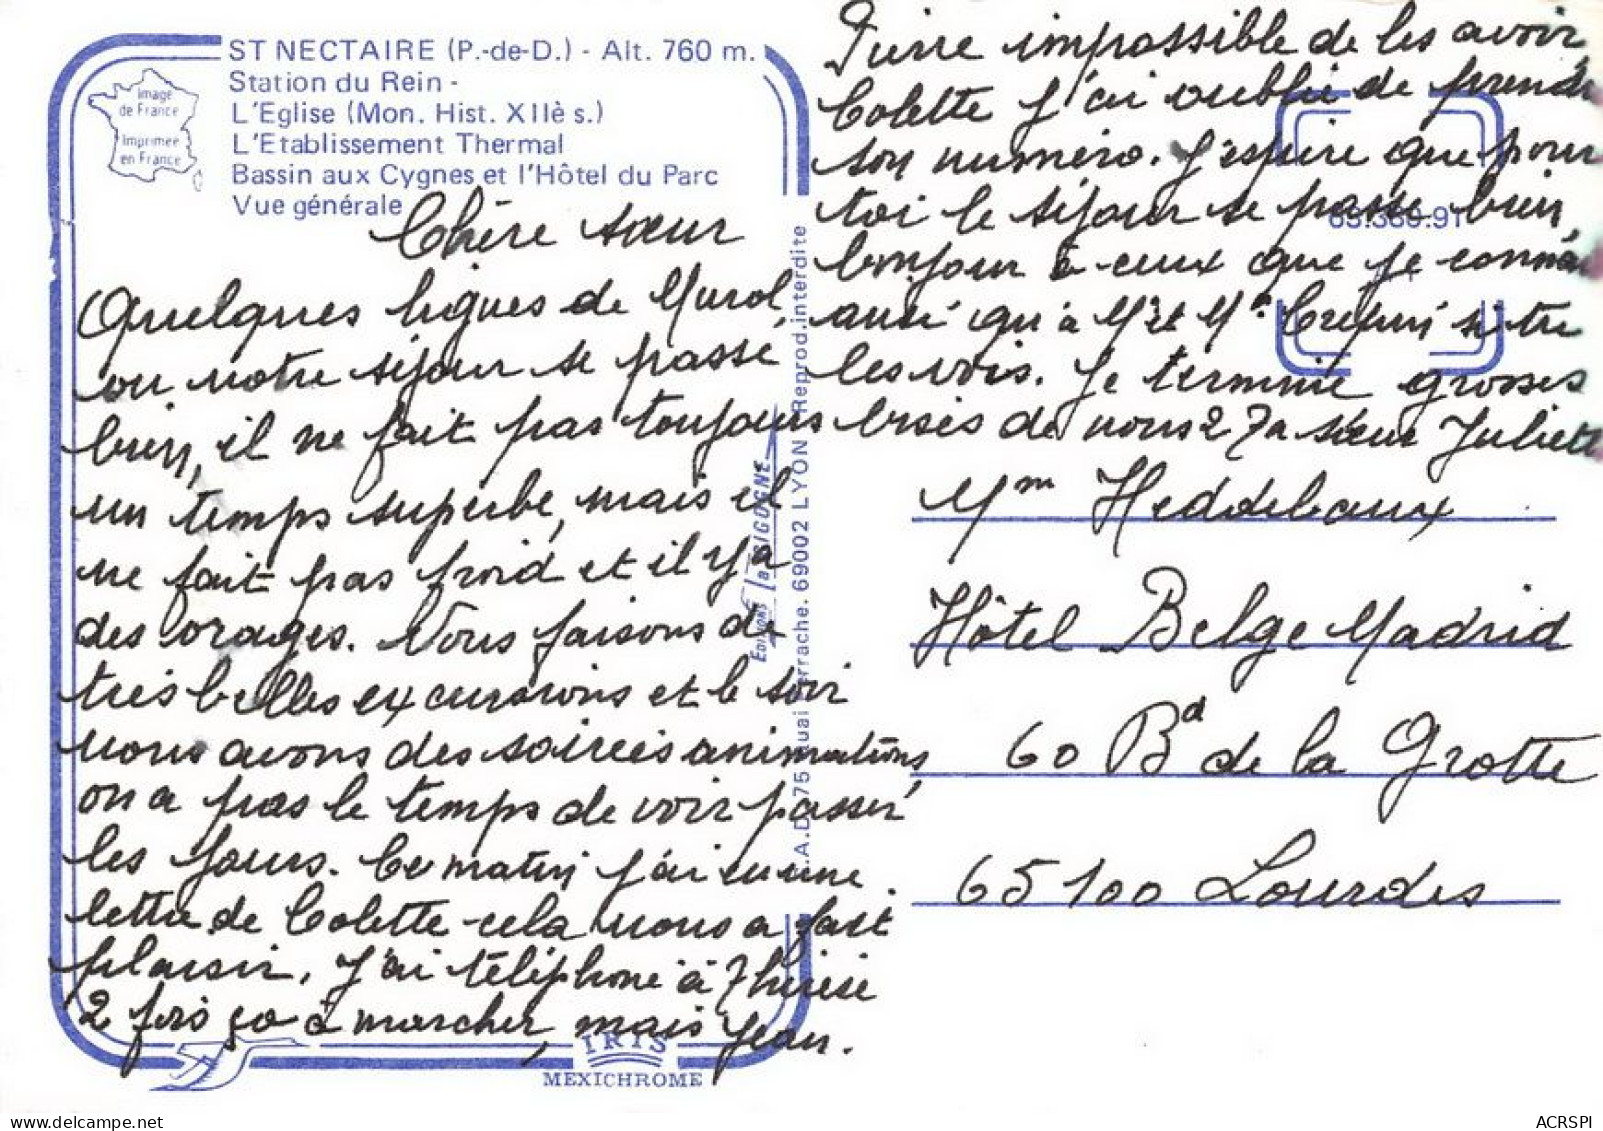 ST NECTAIRE (P.-de-D.) - Alt. 760 m.
Station du Rein -
L'Eglise (Mon. Hist. XIIè s.)
L'Etablissement Thermal
Bassin aux Cygnes et l'Hôtel du Parc
Vue générale
Image
de France
Imprimée
en France
Chère sœur
Quelques lignes de Murol,
ou notre séjour se passe
bien, il ne fait pas toujours
un temps superbe, mais il
ne fait pas froid et il y a
des orages. Nous faisons de
très belles excursions et le soir
nous avons des soirées animations,
on a pas le temps de voir passer
les jours. Ce matin j'ai eu une
lettre de Colette cela nous a fait
plaisir. J'ai téléphoné à Thérèse
2 fois ça à marcher, mais Jean.
Pierre impossible de les avoir,
Colette j'ai oublié de prendr
son numéro. J'espère que pour
toi le séjour se passe bien,
bonjour à ceux que je connai
aussi qu'à Mr et Me si tu
les vois. Je termine grosses
bises de nous 2 Ta sœur Juliette
63.380.91
Mm Heddebaux
Hôtel Belge Madrid
60 Bd de la Grotte
65100 Lourdes
Editions la CIGOGNE
69002 LYON Reprod. interdite
IRIS
MEXICHROME
ACRSPI